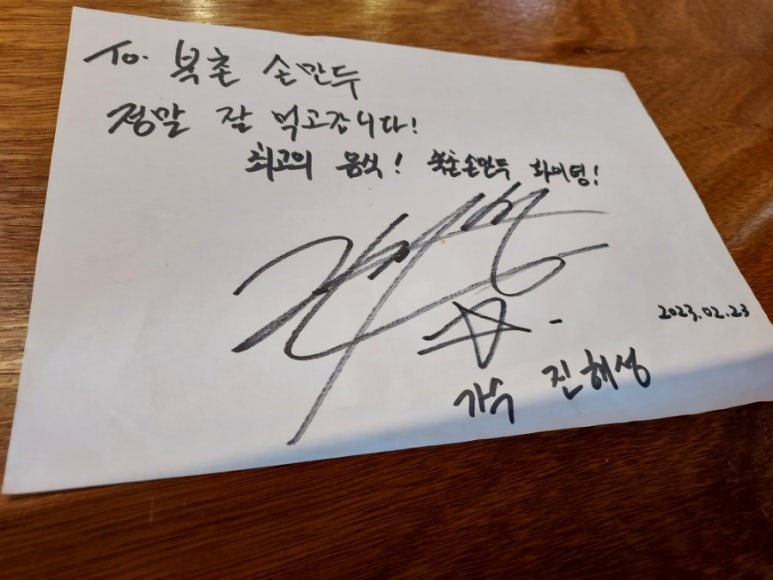 To. 북촌 손만두
정말 잘 먹고갑니다!
최고의 음식! 북촌손만두 화이팅!
2023.02.23
가수 진해성